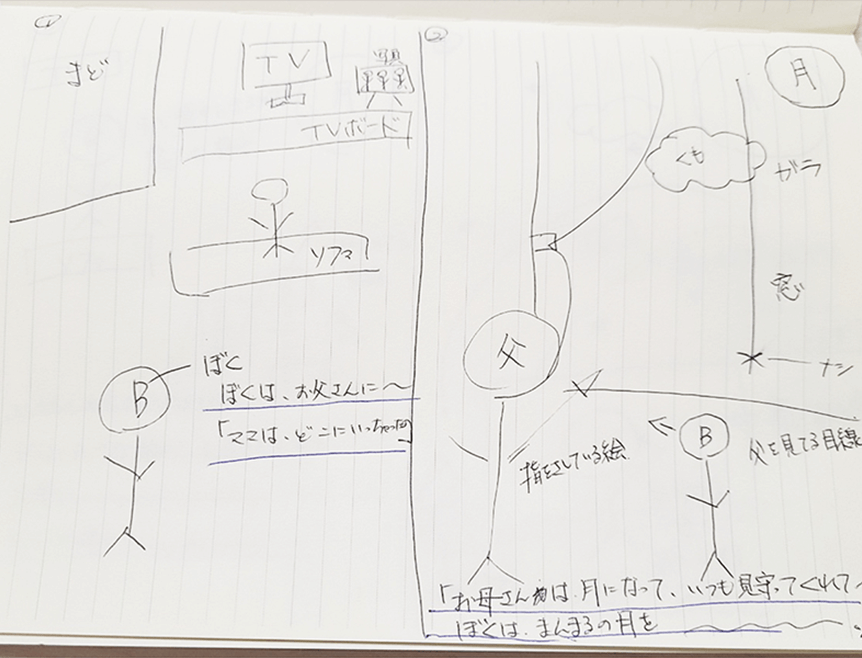 ①
まど
TV
写真
TVボード
ソファ
B
ぼく
ぼくは、お父さんに〜
「ママは、どこにいっちゃったの」
②
月
くも
ガラ
窓
父
ナシ
指をさしている絵
B
父を見てる目線
「お母さんは、月になって、いつも見守ってくれて〜
ぼくは、まんまるの月を